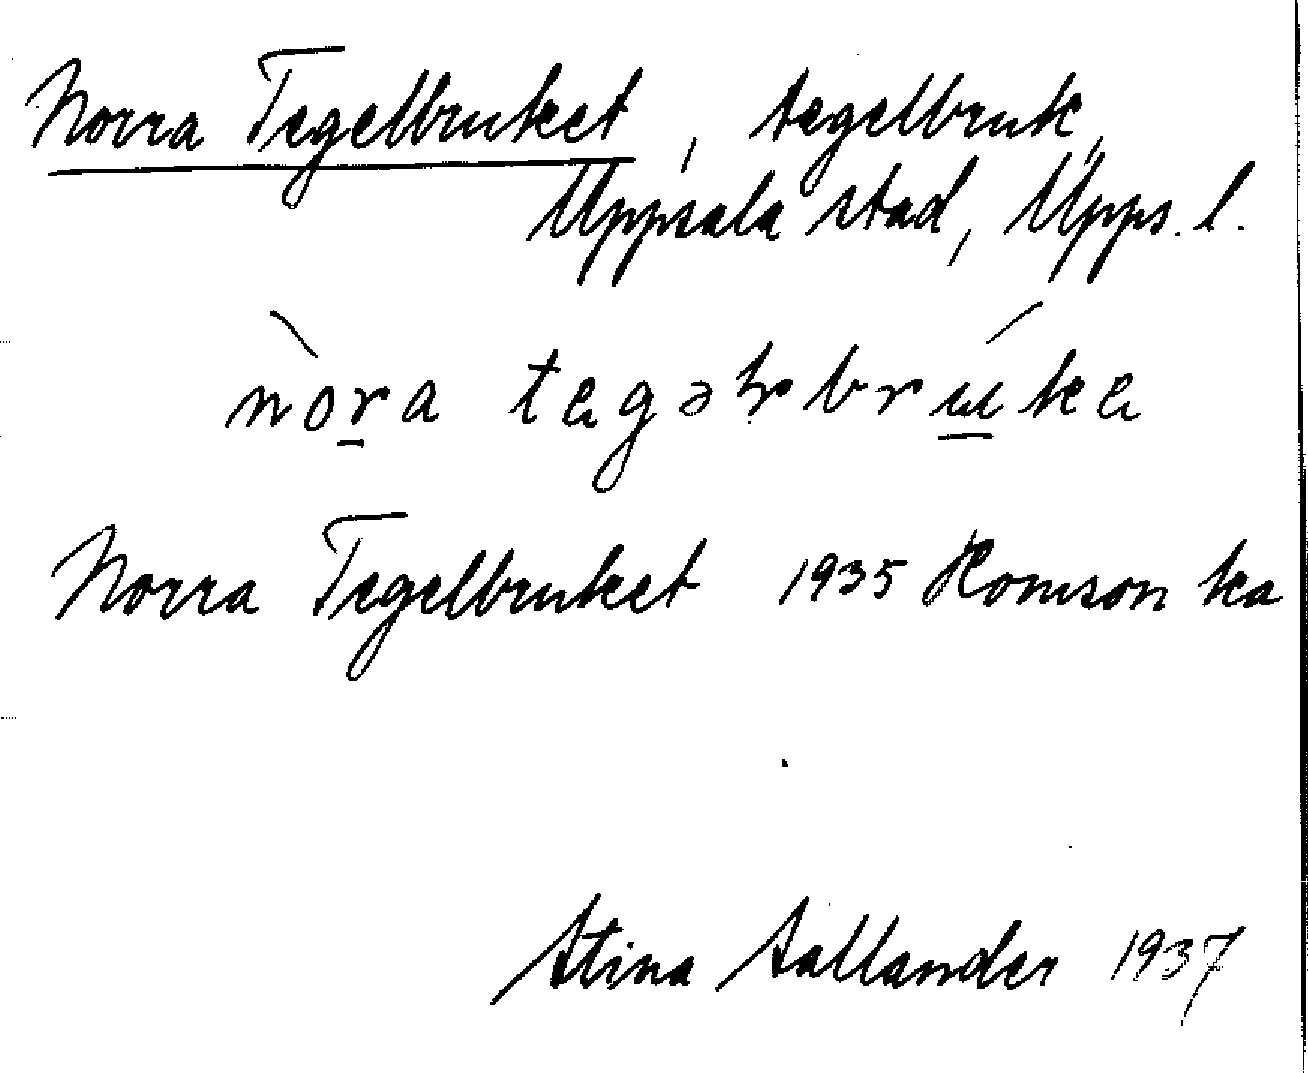 Norra Tegelbruket, tegelbruk,
Uppsala stad, Upps. l.
nòra tegəɽbrúke
Norra Tegelbruket 1935 Homson ka
Stina Sallander 1937